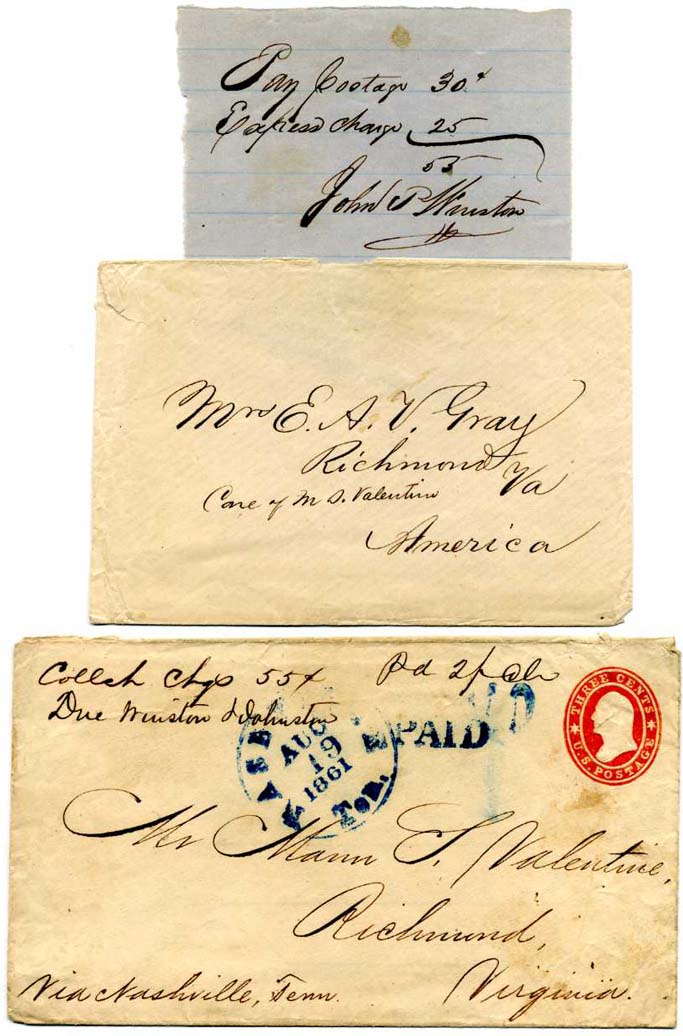 Pay Postage 30¢
Express charge 25
55
John P Winston
Mrs E. A. V. Gray
Richmond
Va
Care of M S. Valentine
America
Collect Chgs 55¢
Due Winston & Johnston
Pd
THREE CENTS
U.S. POSTAGE
PAID
AUG
19
1861
Ten.
Mr Mann S. Valentine,
Richmond,
Virginia.
Via Nashville, Tenn.